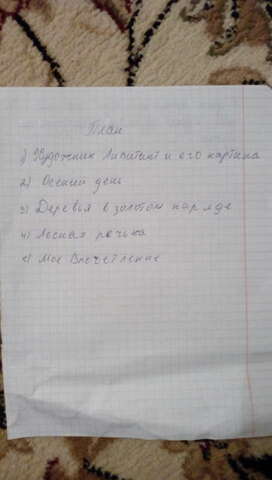 План
1) Художник Ливитан и его картина
2) Осений день
3) Деревья в золотом наряде
4) Лесная речька
5) Мое Впечетление